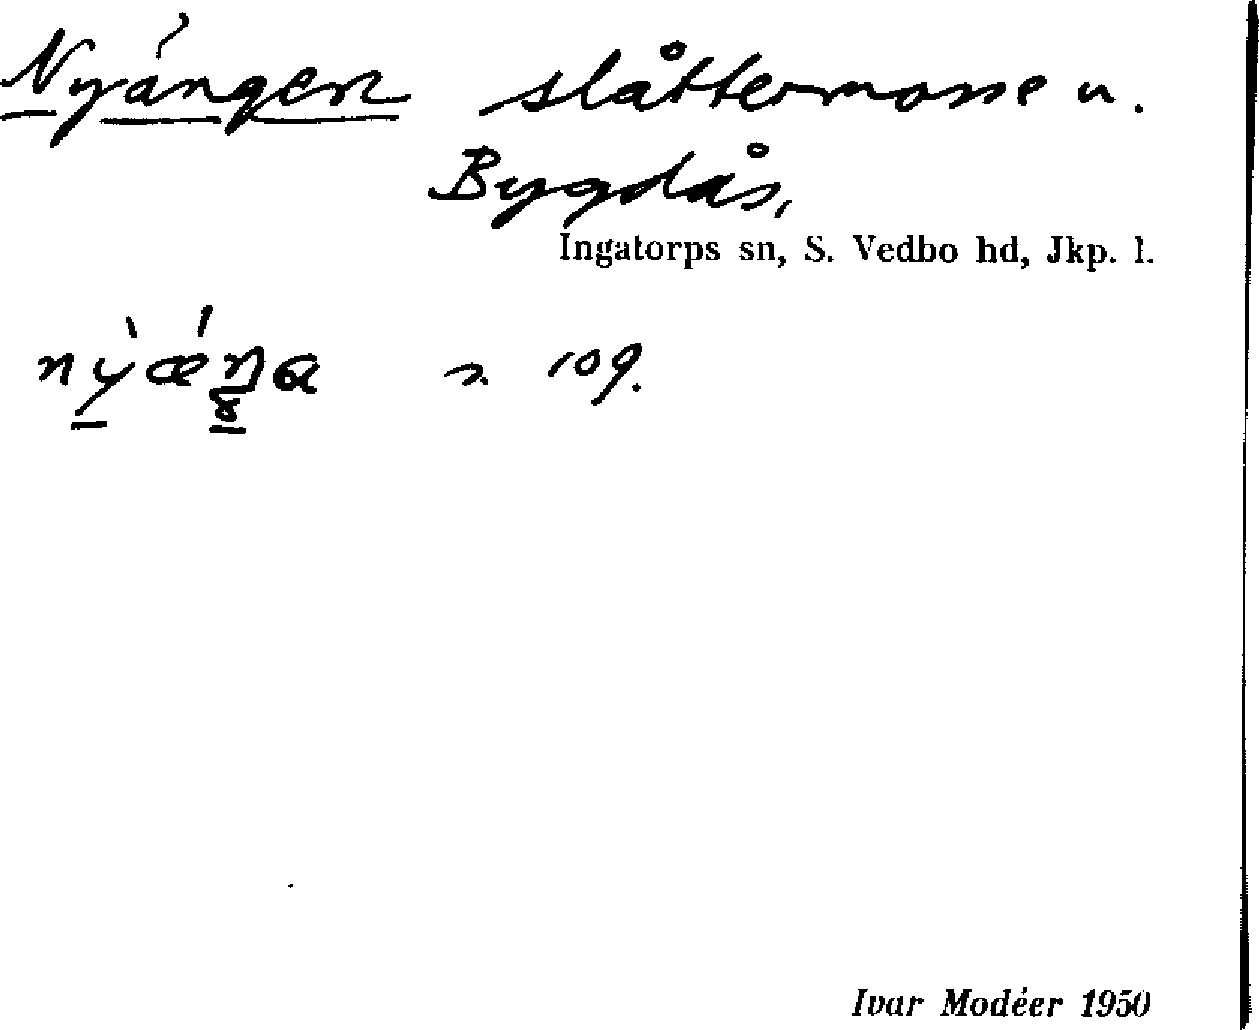 Nyängen slåttermosse u.
Bygdås,
Ingatorps sn, S. Vedbo hd, Jkp. l.
nỳǽŋa s. 109.
Ivar Modéer 1950